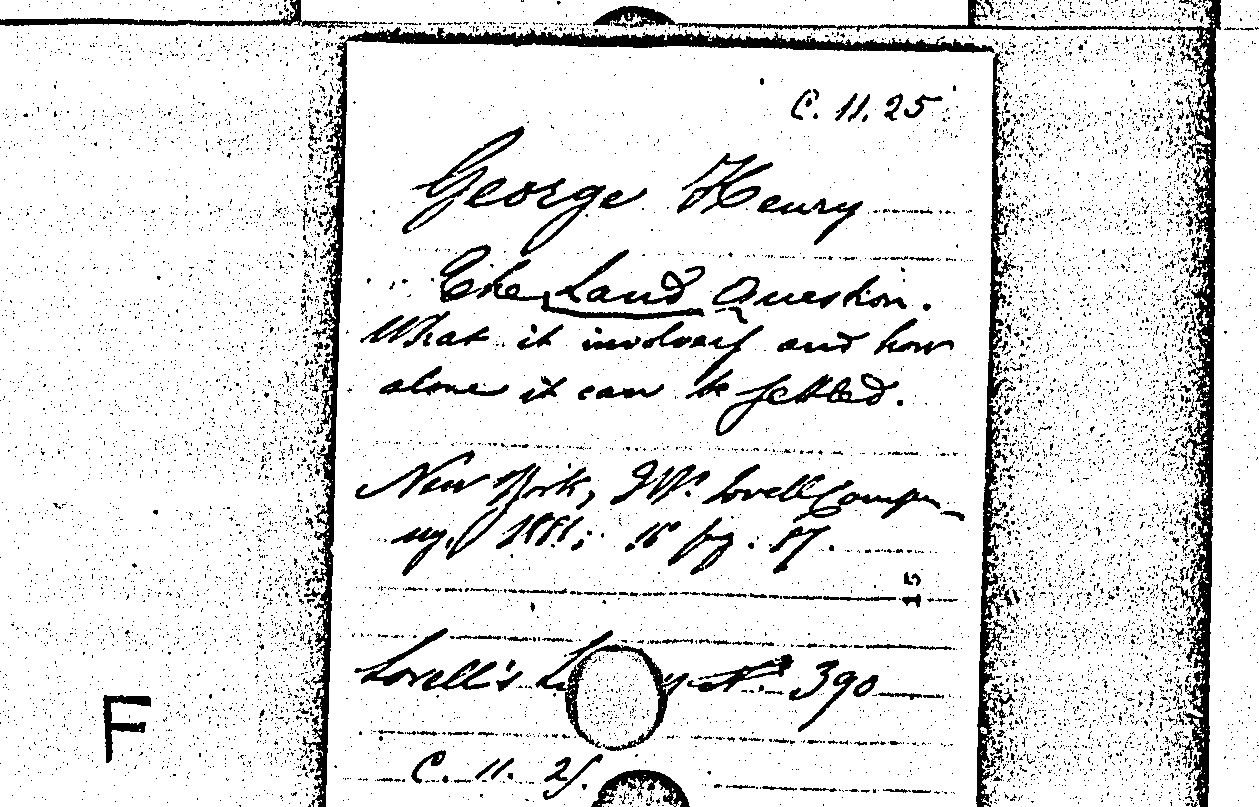 C. 11. 25
George Henry
The Land Question.
What it involves and how
alone it can be settled.
New York, J.W. Lovell Compa-
ny. 1881; 16 pg. 87.
15
Lovell's N° 390
F
C. 11. 25.